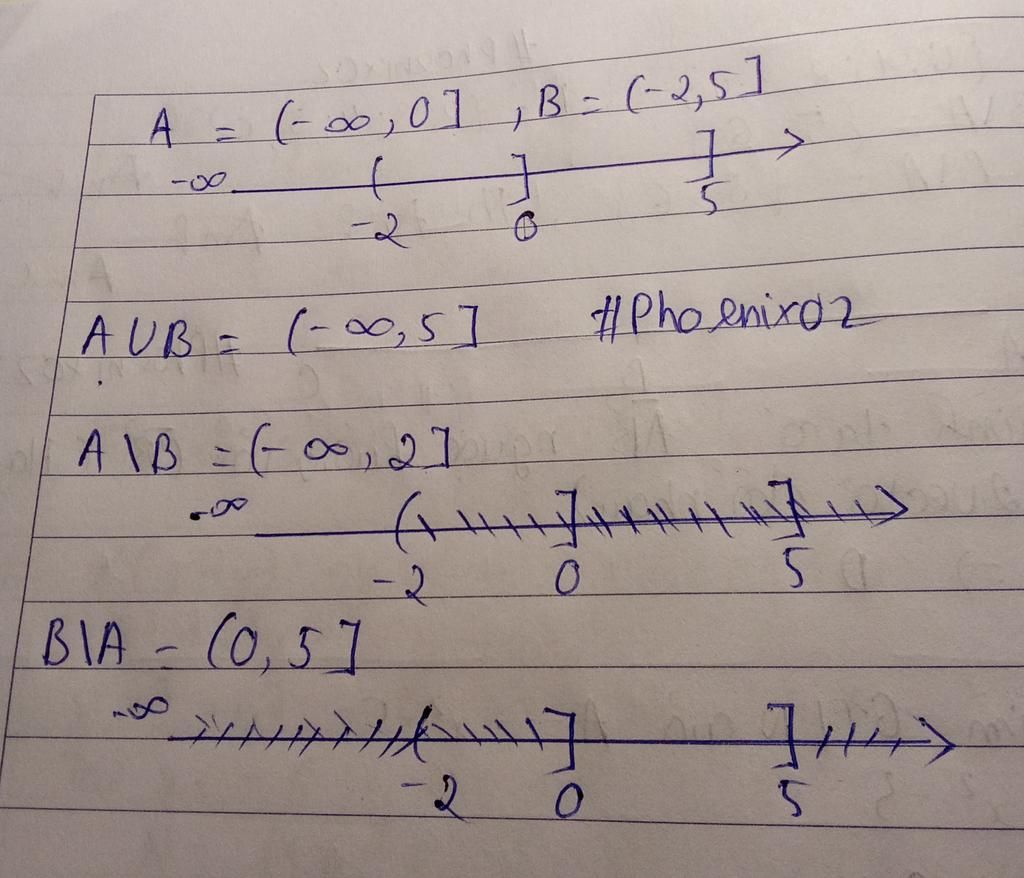 A = (-∞, 0] , B = (-2, 5]
-∞ ( ] ]
-2 0 5
A∪B = (-∞, 5] #Phoenix02
A\B = (-∞, 2]
-∞ ( ] ]
-2 0 5
B\A = (0, 5]
-∞ ( ] ]
-2 0 5